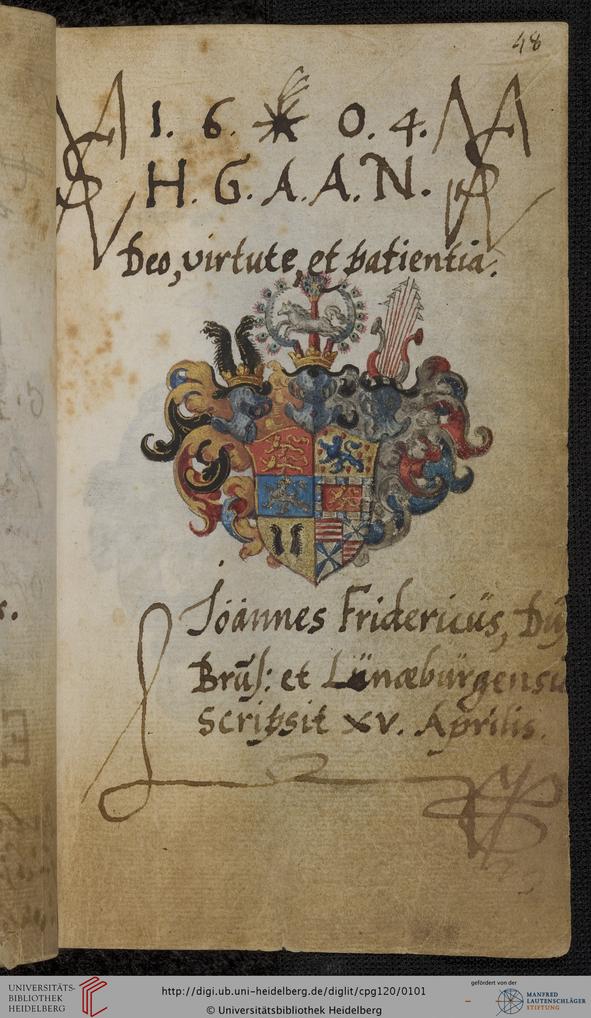 48
1. 6. 0. 4.
H. G. A. A. N.
Deo, virtute, et patientia.
Joannes Fridericüs,
Brūs: et Lünæbürgensiu
Scripsit xv. Aprilis.
UNIVERSITÄTS-
BIBLIOTHEK
HEIDELBERG
http://digi.ub.uni-heidelberg.de/diglit/cpg120/0101
© Universitätsbibliothek Heidelberg
gefördert von der
MANFRED
LAUTENSCHLÄGER
STIFTUNG